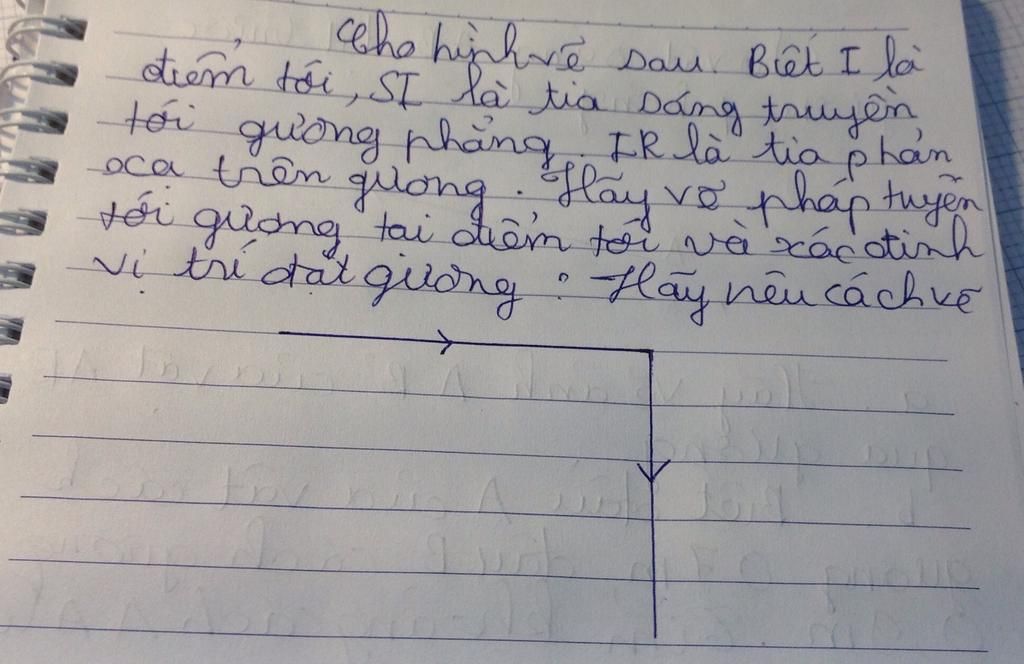 Cho hình vẽ sau. Biết I là
điểm tới, SI là tia sáng truyền
tới gương phẳng. IR là tia phản
xạ trên gương. Hãy vẽ pháp tuyến
tới gương tại điểm tới và xác định
vị trí đặt gương : Hãy nêu cách vẽ